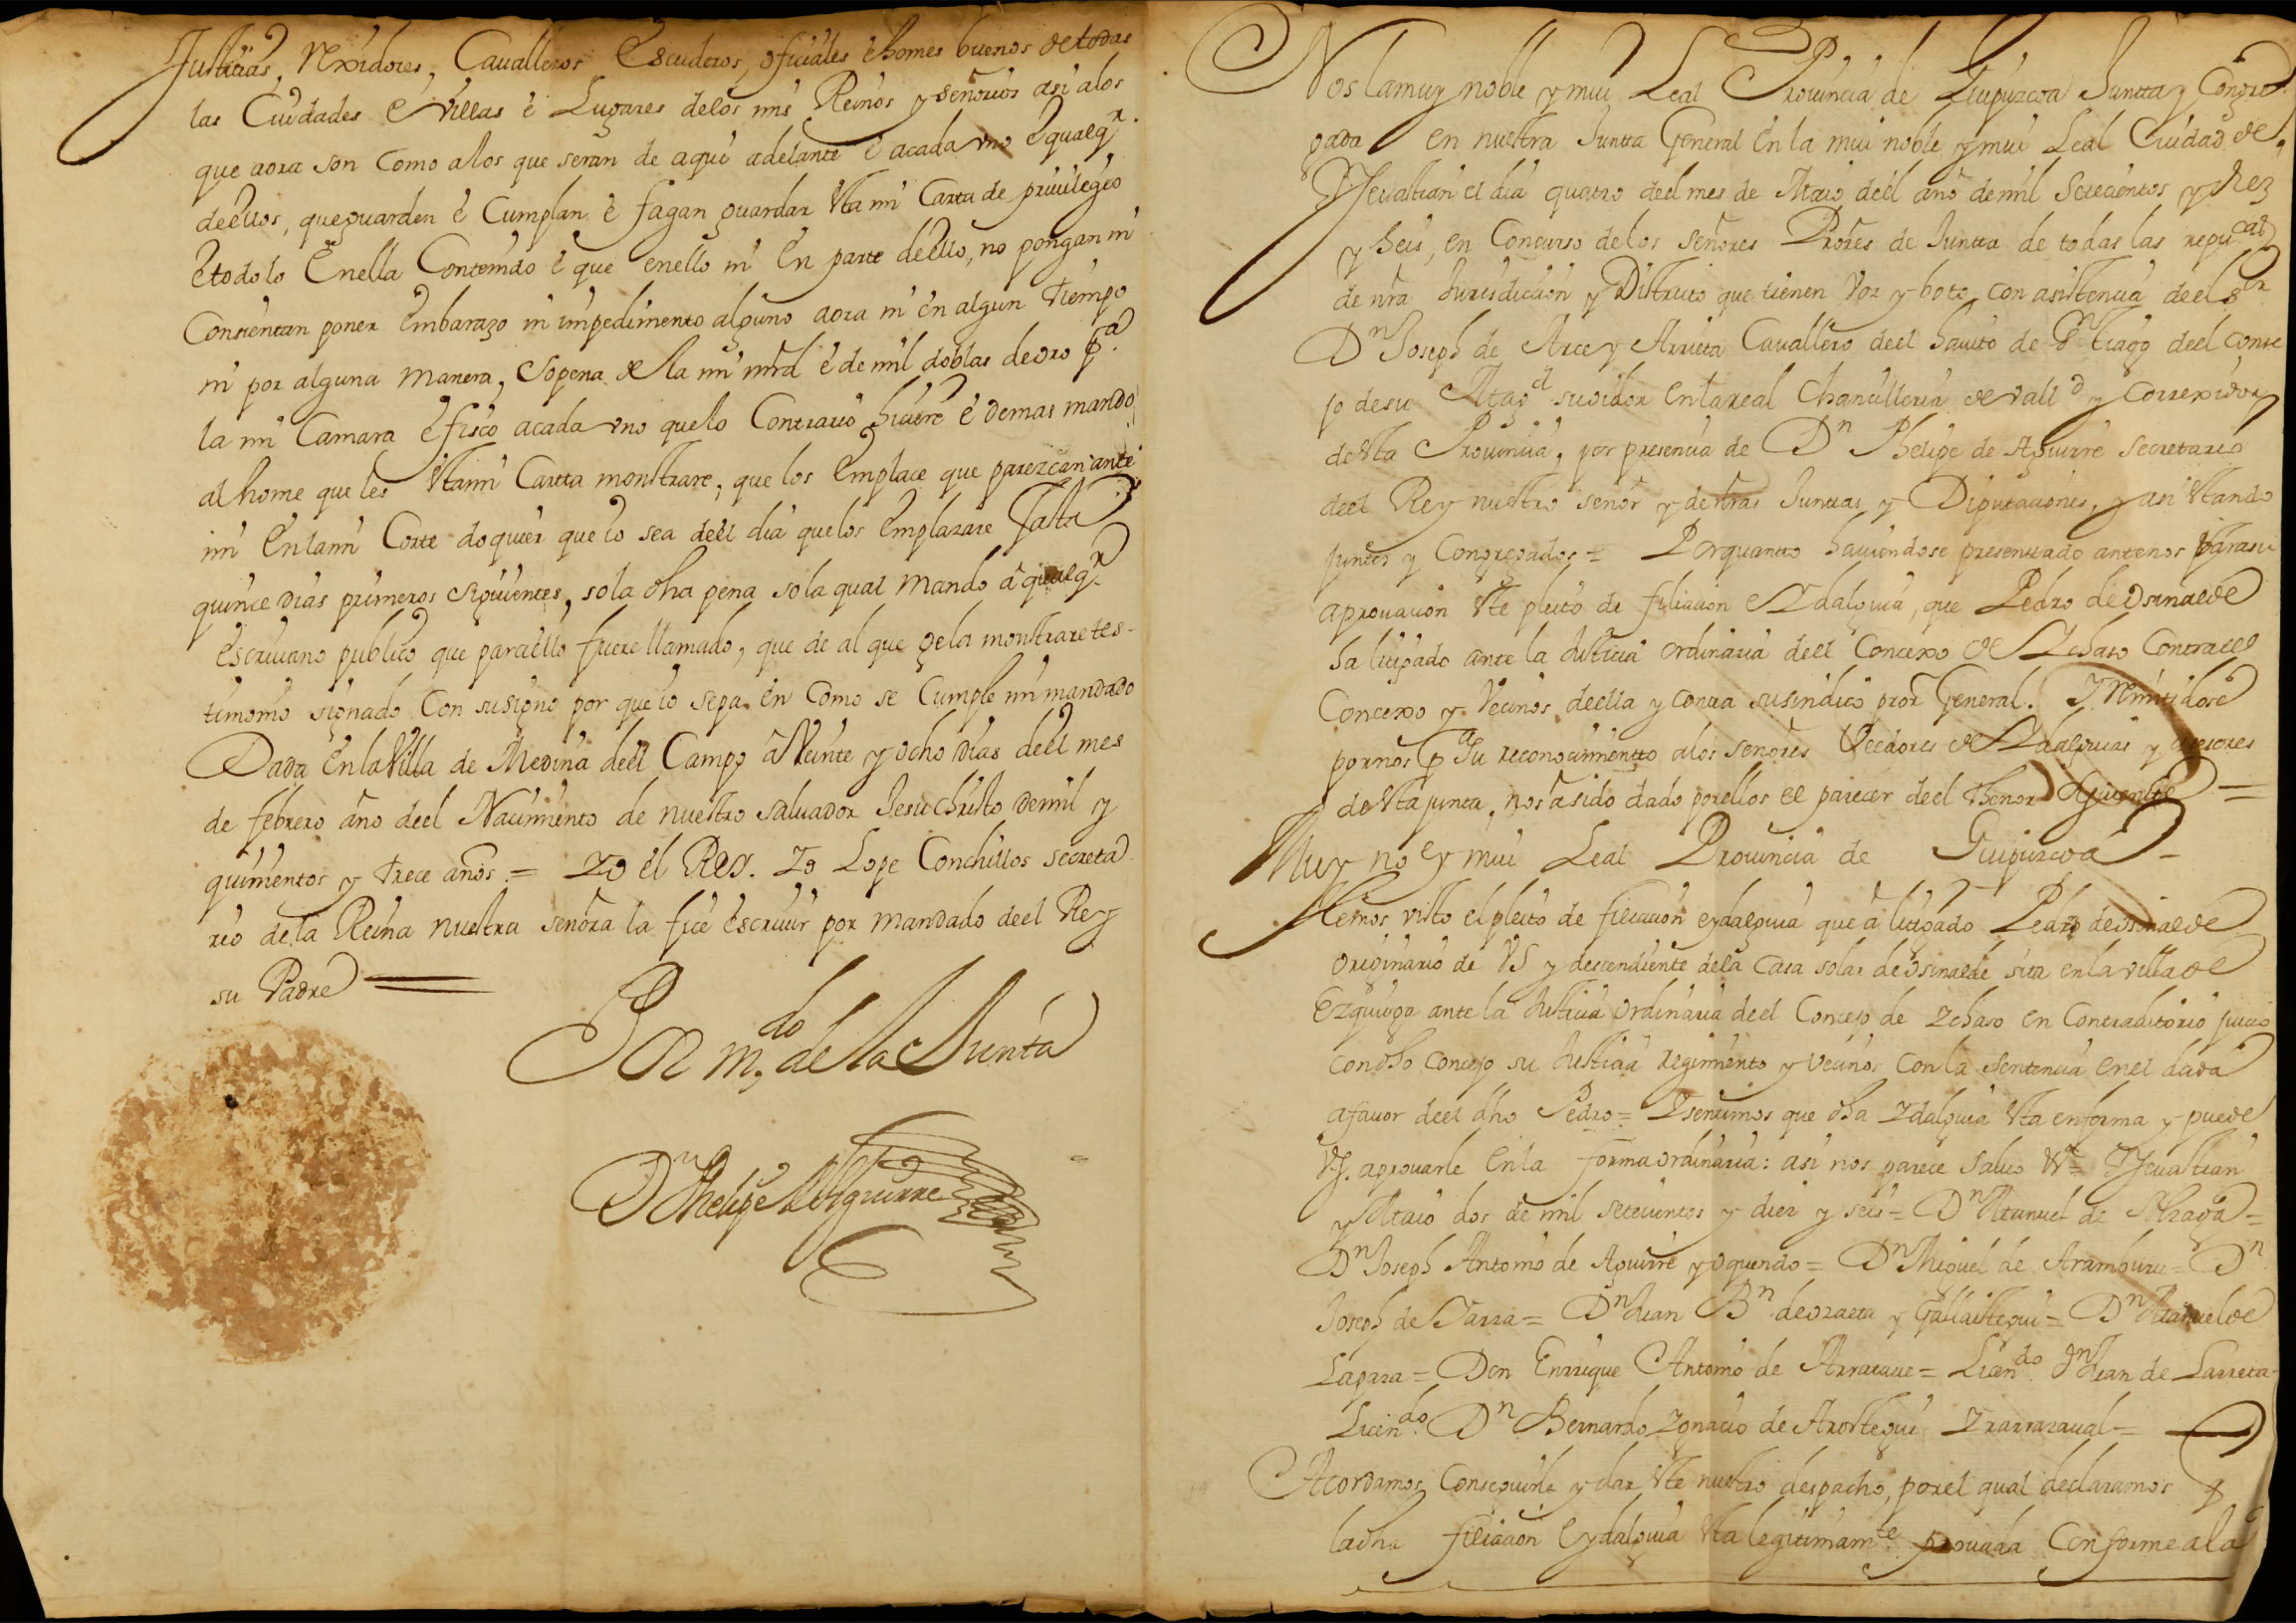 Justicias, Rexidores, Cavalleros Escuderos, oficiales è homes buenos de todas
las Ciudades è Villas è Lugares delos mis Reinos y señorios asi alos
que aora son como alos que seran de aqui adelante è acada vno è qualqr.
deellos, que guarden è Cumplan è fagan guardar esta mi Carta de privilegio
è todo lo Enella Contenido è que enello ni En parte deello, no pongan ni
Consientan poner Embarazo ni impedimento alguno aora ni en algun tiempo
ni por alguna manera, Sopena de la mi mrd è de mil doblas de oro pa.
la mi Camara è fisco acada vno quelo Contrario hiciere è demas mando
al home queles esta mi Cartta monstrare, que los Emplace que parezcan ante
mi En la mi Corte doquier que io sea deel dia quelos Emplazare fasta
quince dias primeros siguientes, sola dha pena sola qual mando à qualqr.
Escrivano publico que paraello fuere llamado, que de al que gela monstrare tes-
timonio signado Con susigno por que io sepa en como se Cumple mi mandado
Dada En la Villa de Medina deel Campo à Veinte y ocho dias deel mes
de febrero año deel Nacimiento de nuestro salvador Jesu Christo de mil y
quinientos y trece años = Yo el Rey. Yo Lope Conchillos secreta
rio de la Reina nuestra señora la fice escrivir por mandado deel Rey
su Padre
Por mdo, de la Junta
Dn Phelipe de Aguirre
Nos la muy noble y mui Leal Provincia de Guipuzcoa Juntta y Congre
gada en nuestra Juntta General En la mui noble y mui Leal Ciudad de
Sn Sevastian el dia quatro deel mes de Maio deel año de mil Setecientos y diez
y seis, en Concurso delos señores Prores de Juntta de todas las repucas
de nra Jurisdicion y Distrito que tienen Voz y boto, con asistencia deel sr
Dn Joseph de Arce y Arrieta Cavallero deel havito de Sn tiago deel Conse
jo de su Magd su oidor en la real Chancilleria de valld y Correxidor
de esta Provincia, por presencia de Dn Phelipe de Aguirre Secretario
deel Rey nuestro señor y de nras Junttas y Diputaciones, y asi estando
juntos y Congregados = Porquantto haviendose presenttado antenos para su
aprovacion este pleito de filiacion e Ydalguia, que Pedro de Osinalde
ha litigado ante la Justicia ordinaria deel Concexo de Ychaso Contra el
Concexo y Vecinos deella y contra su sindico pror General. Y Remitidose
por nos pa Su reconocimientto alos señores Veedores de Ydalguias y asesores
de esta junta, nos à sido dado por ellos el parecer deel thenor siguiente =
Muy noe y mui Leal Provincia de Guipuzcoa =
Hemos visto el pleito de filiacion e ydalguia que à litigado Pedro de Osinalde
originario de VS y descendiente dela Casa solar de Osinalde sita en la villa de
Ezquioga ante la Justicia ordinaria deel Concejo de Ychaso en Contraditorio juicio
con dho concejo su Justicia regimiento y vecinos con la sentencia en el dada
a favor deel dho Pedro = Y sentimos que dha Ydalguia esta en forma y puede
VS. aprovarle en la forma ordinaria: asi nos parece salvo &a = Sn Sevastian
y Maio dos de mil setecientos y diez y seis = Dn Manuel de Alizaga =
Dn Joseph Antonio de Aguirre y Oquendo = Dn Miguel de Aramburu = Dn
Joseph de Yarza = Dn Juan Bn. de Oraeta y Gallaistegui = Dn Manuel de
Lapaza = Don Enrrique Antonio de Arratave = Licendo. Dn Juan de Larreta
Licendo. Dn Bernardo Ygnacio de Arostegui Yrarrazaval =
Acordamos Conseguirle y dar este nuestro despacho, por el qual declaramos q
la dha filiacion e ydalguia esta legitimamte. provada Conforme a la